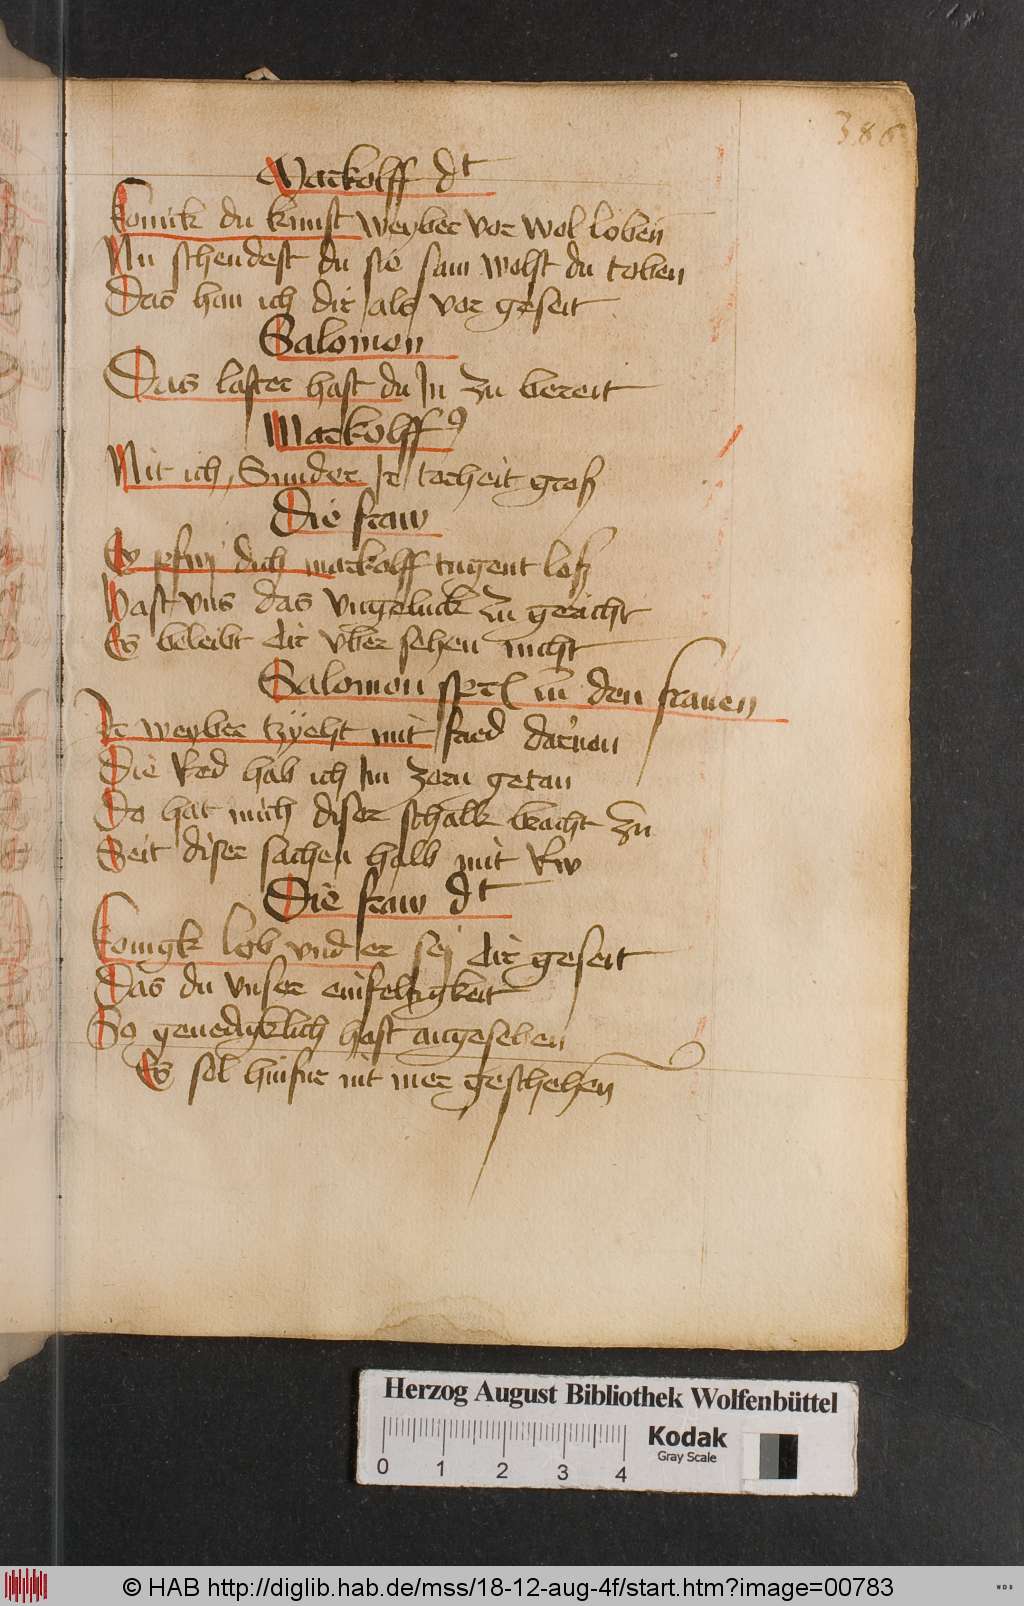 386
Markolff dt
Konick du kunst weyber vor wol loben
Nu schendest du sie sam wolst du toben
Das han ich dir als vor geseit
Salomon
Das laster hast du In zu bereit
Markolff9
Nit ich Sunder Ir torheit groß
Die fraw
Ey pfuj dich markolff tugent loß
Hast vns das vngeluck zu gericht
Es beleibt dir vber sehen nicht
Salomon zu den frauen
Ir weyber tzyeht mit frid daruon
Die Red hab ich Im zorn getan
Do hat mich diser schalk bracht zu
Seit diser sachen halb mit Rw
Die fraw dt
Konigk lob vnd er sej dir geseit
Das du vnser einfeltigkeit
So genediklich hast angesehen
Es sol hinfur nit mer geschehen
Herzog August Bibliothek Wolfenbüttel
Kodak
Gray Scale
0 1 2 3 4
© HAB http://diglib.hab.de/mss/18-12-aug-4f/start.htm?image=00783